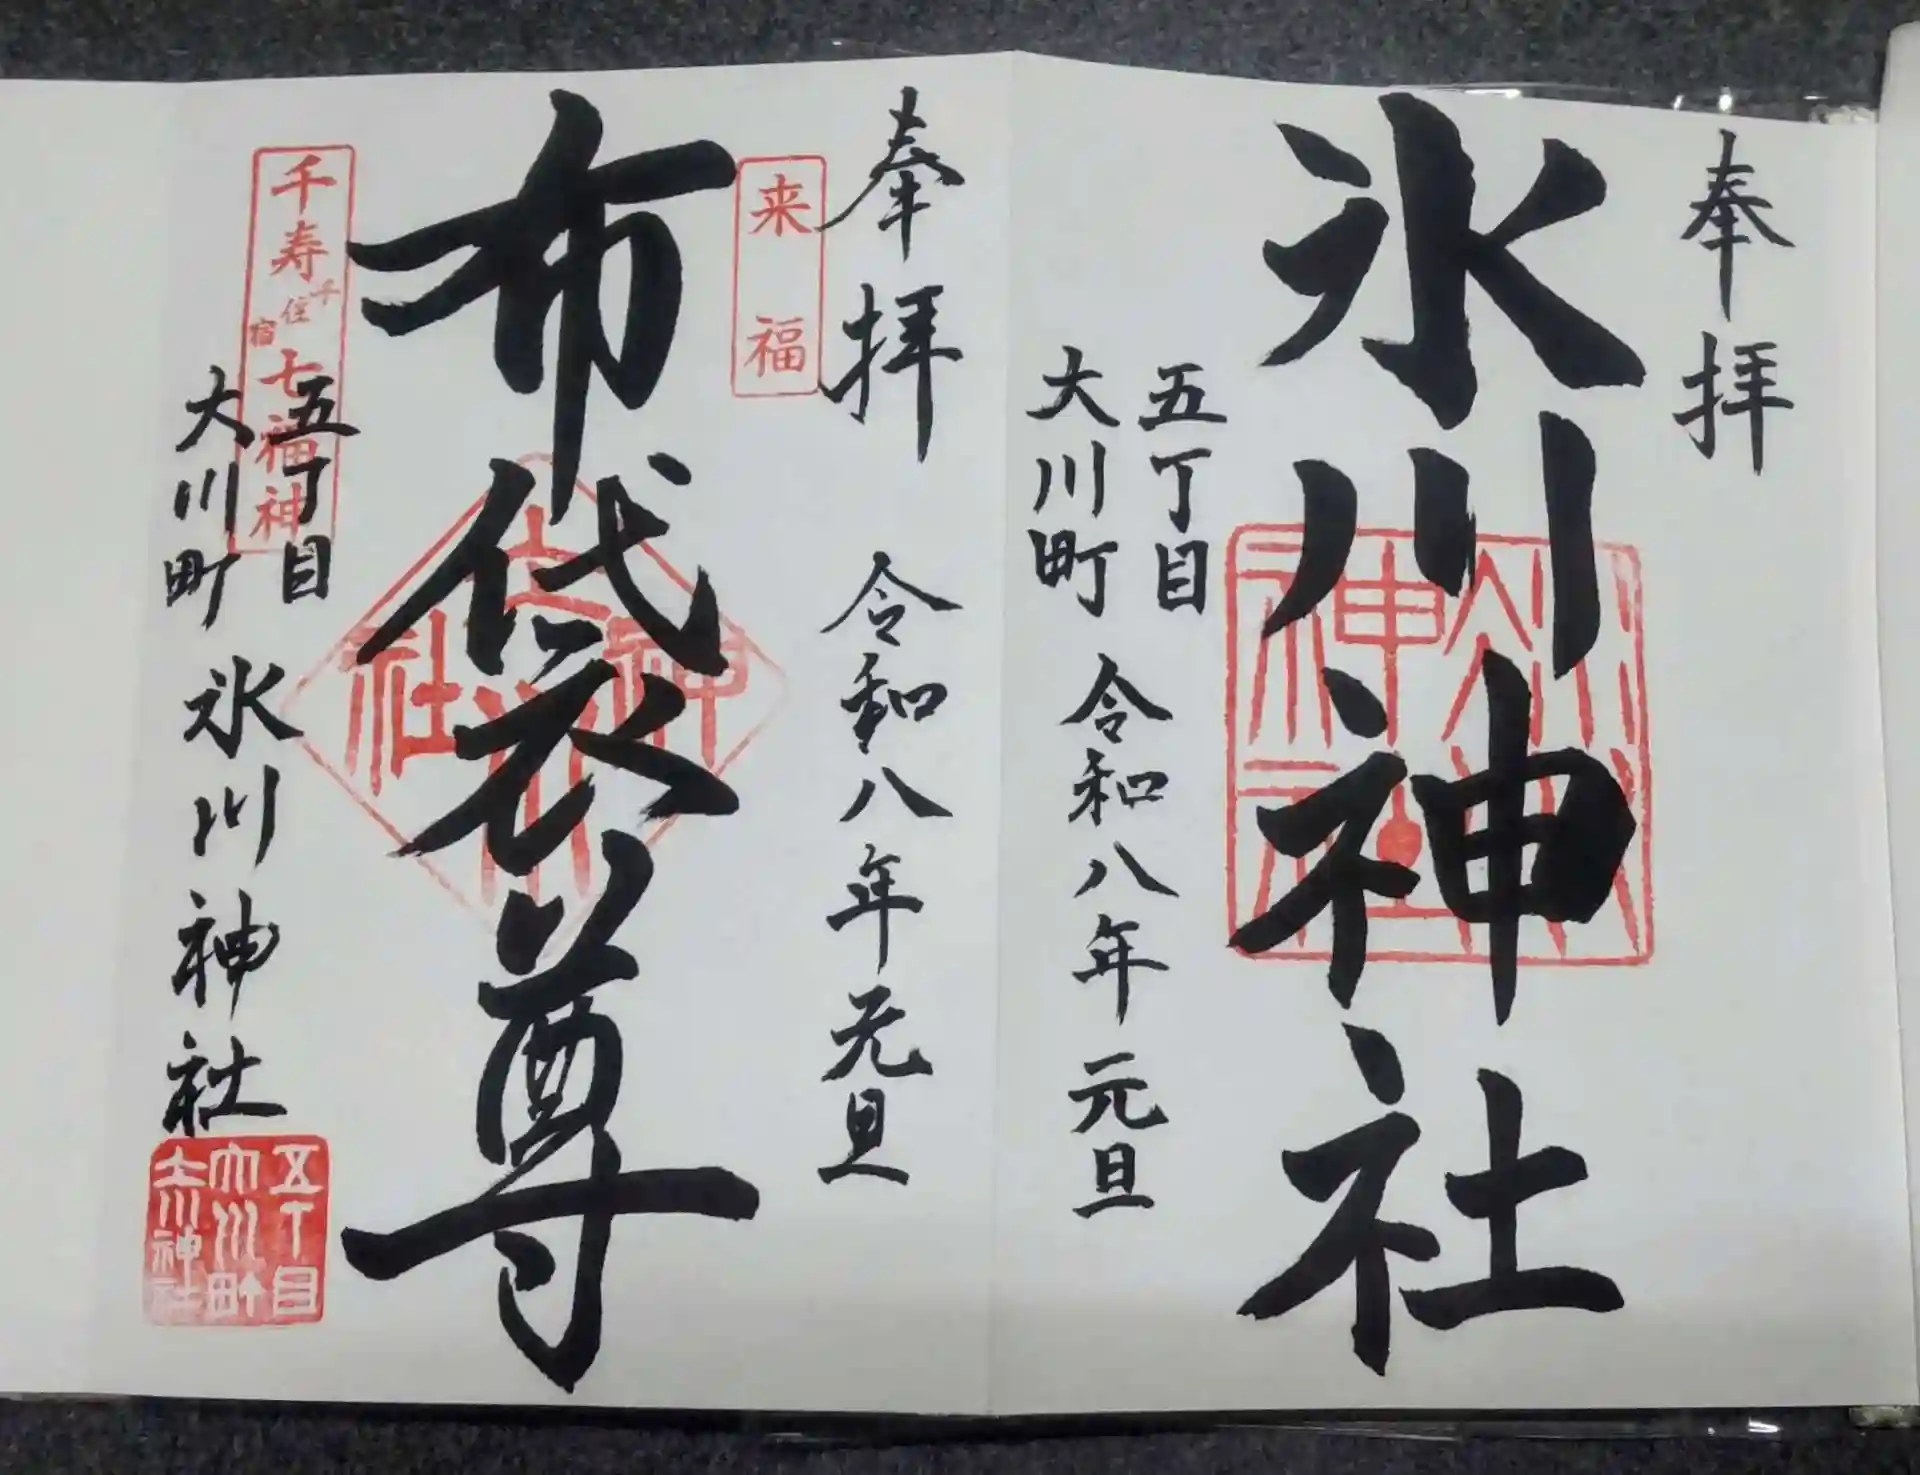 奉拝
氷川神社
氷川神社
五丁目
大川町
令和八年元旦
奉拝
令和八年元旦
来福
布袋尊
氷川神社
千寿七福神
千住宿
五丁目
大川町
氷川神社
五丁目
大川町
氷川神社